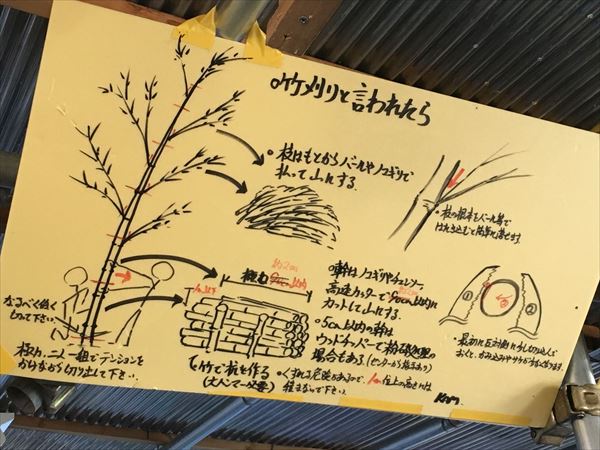 竹刈りと言われたら
枝はもとからバールやノコギリで
払って山にする。
枝の根本をバール等で
はたき込むと簡単に落せます。
なるべく低く
切って下さい。
極力、二人一組でテンションを
かけながら切り出して下さい。
極力
約2m
1m以下
竹で杭を作る
(大ハンマー必要)
幹はノコギリやチェンソー、
高速カッターで
カットして山にする。
5cm以内の幹は
ウッドチッパーで粉砕処理の
場合もある
くずれる危険があるので、1m位上の高さには
積まないで下さい。
①
②
最初に反対側に少し切り込んで
おくと、かみ込みやサケがすくなります。